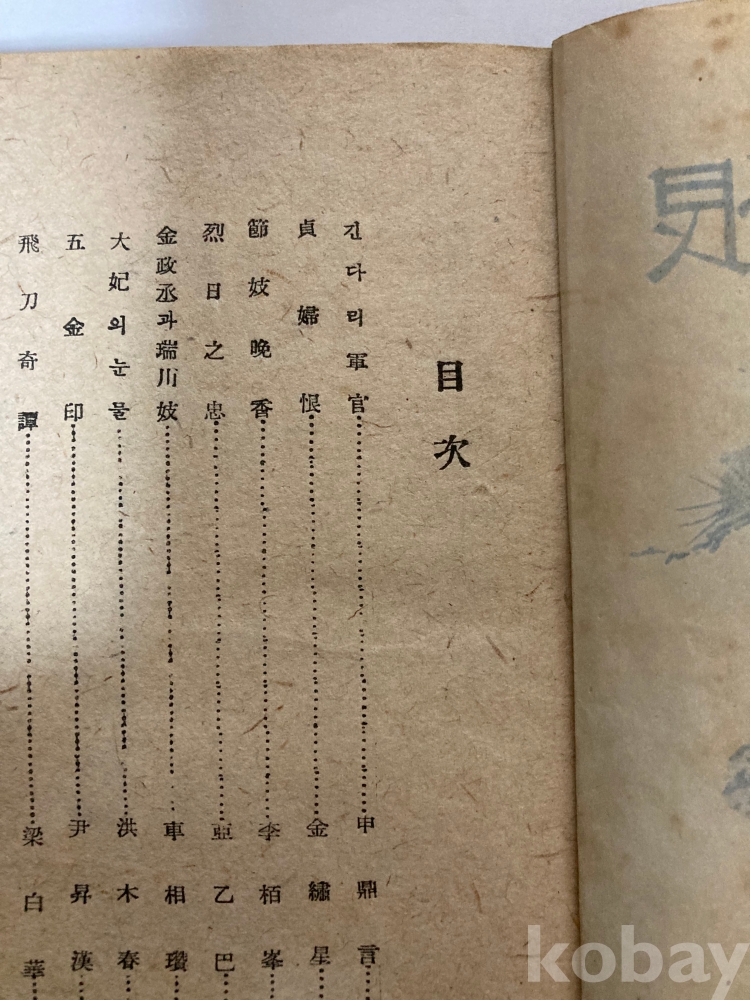 目次
긴다리軍官 申鼎言
貞婦恨 金繡星
節妓晩香 李栢峯
烈日之忠 亞乙巴
金政丞과瑞川妓 車相瓚
大妃의눈물 洪木春
五金印 尹昇漢
飛刀奇譚 梁白華
kobay